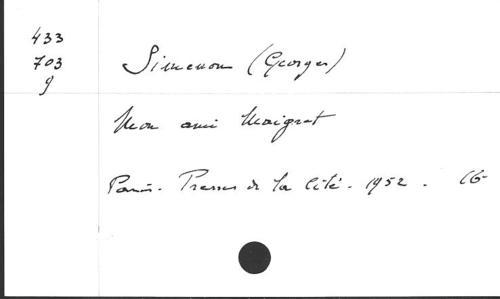 433
703
9
Simenon (Georges)
Mon ami Maigret
Paris. Presses de la Cité. 1952. 16